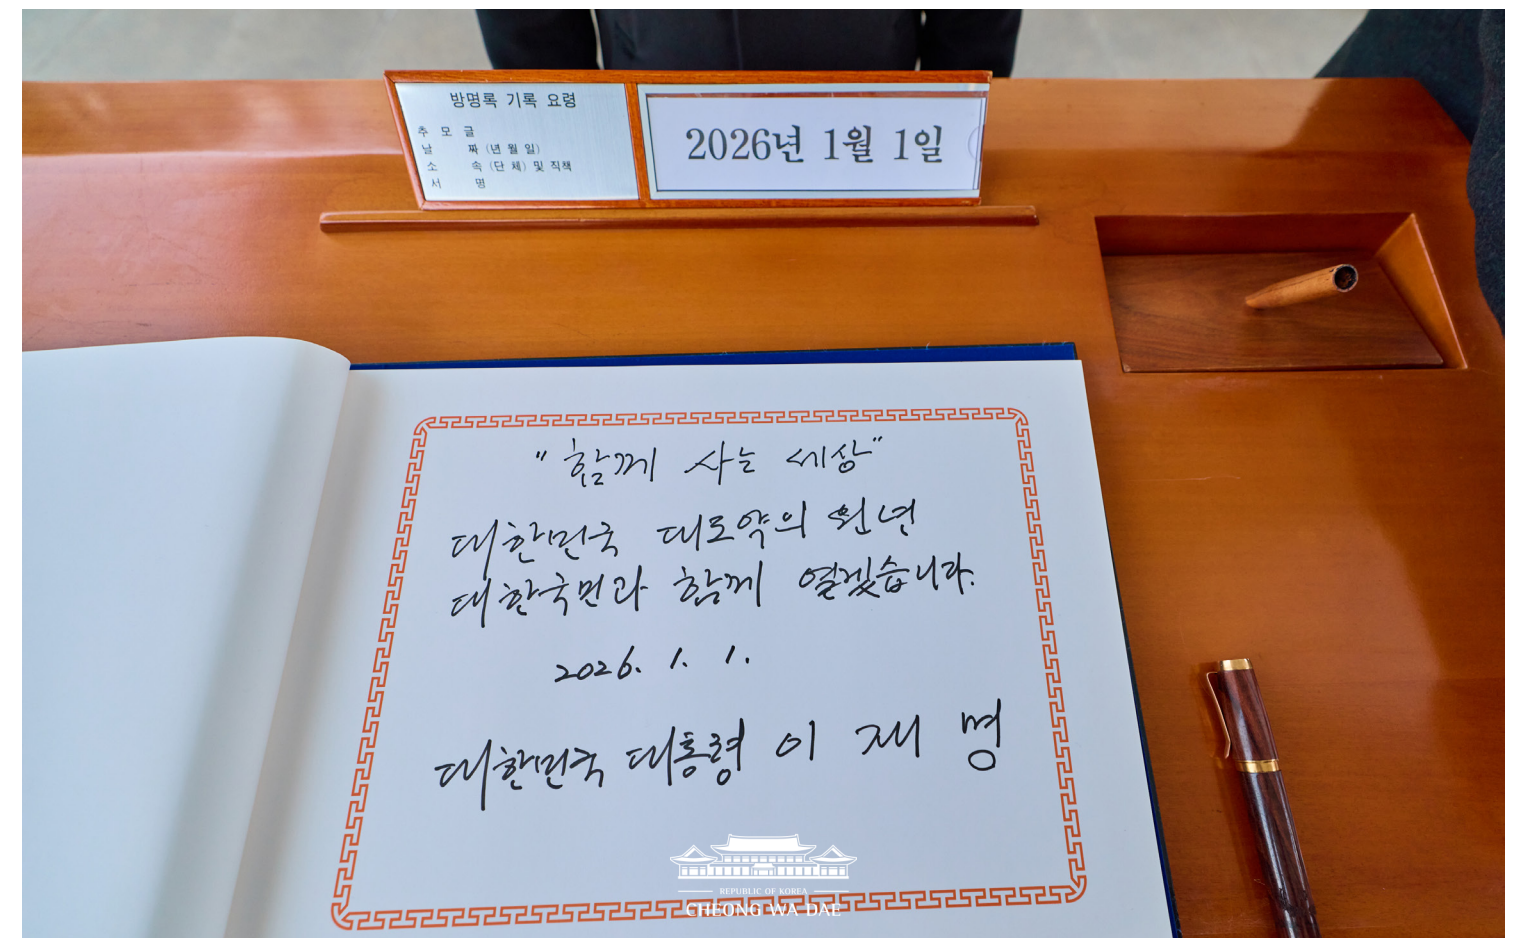 방명록 기록 요령
추 모 글
날 짜 (년 월 일)
소 속 (단 체) 및 직책
서 명
2026년 1월 1일
"함께 사는 세상"
대한민국 대도약의 원년
대한국민과 함께 열겠습니다.
2026. 1. 1.
대한민국 대통령 이 재 명
REPUBLIC OF KOREA
CHEONG WA DAE